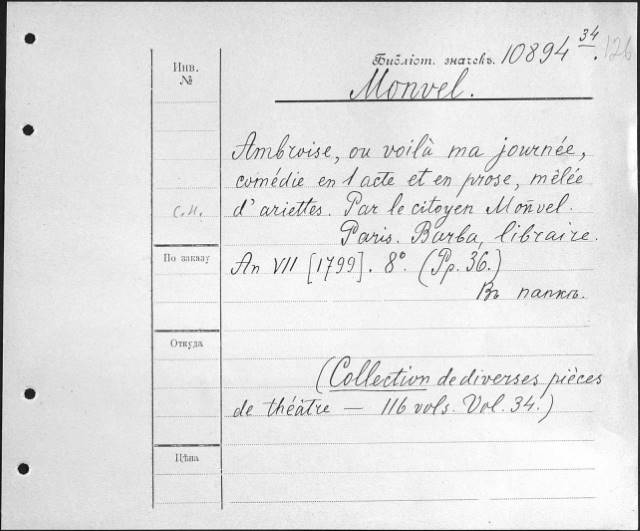 Инв.
№
Библіот. значекъ. 10894 34. 126
Monvel.
Ambroise, ou voilà ma journée,
comédie en 1 acte et en prose, mêlée
с.н. d'ariettes. Par le citoyen Monvel.
Paris. Barba, libraire.
По заказу
An VII [1799]. 8°. (Pp. 36.)
Въ папкѣ.
Откуда
(Collection de diverses pièces
de théâtre — 116 vols. Vol. 34.)
Цѣна